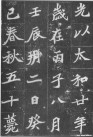 光以太和廿年
歲在丙子八月
壬辰朔二日癸
巳春秋五十薨